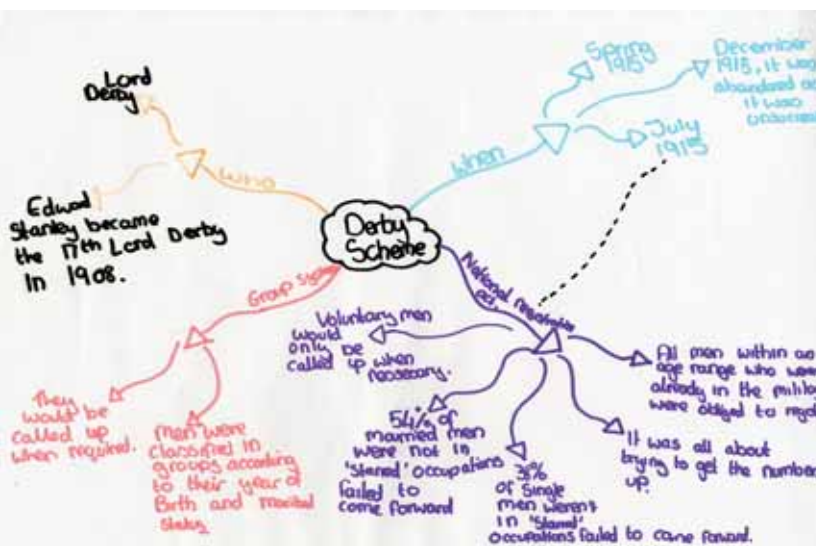 Derby
Scheme
Who
Lord
Derby
Edward
Stanley became
the 17th Lord Derby
in 1908.
When
Spring
1915
December
1915, it was
abandoned as
it was
July
1915
Group System
They
would be
called up
when required.
Men were
classified in
groups according
to their year of
Birth and marital
status
National
act.
Voluntary men
would
only be
called up when
necessary.
54% of
married men
were not in
'starred' occupations
failed to
come forward
of single
men weren't
in 'starred'
occupations failed to come forward.
It was all about
trying to get the number
up.
All men within an
age range who
already in the
were obliged to